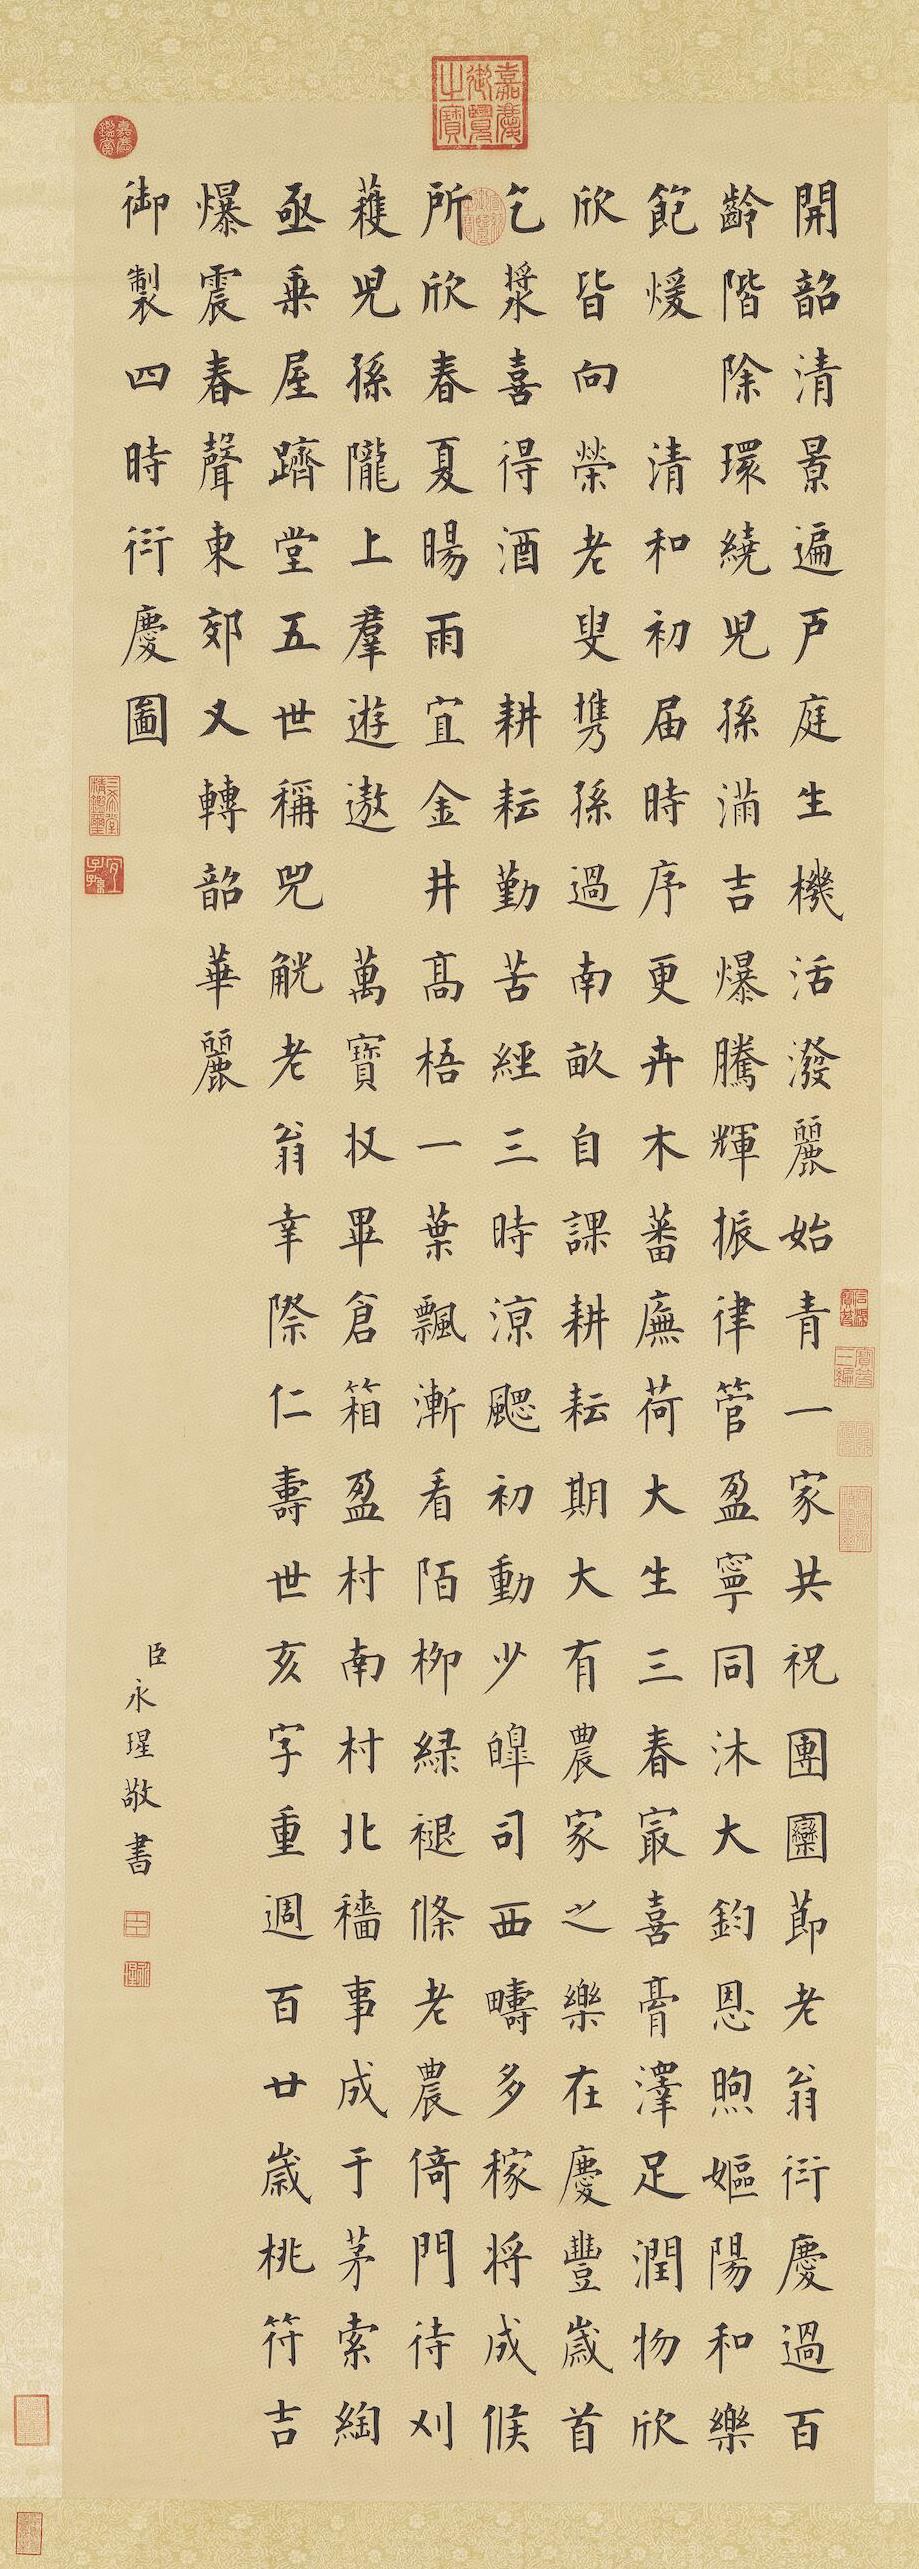 開韶清景遍戶庭生機活潑麗始青一家共祝團圞節老翁衍慶過百
齡階除環繞兒孫滿吉爆騰輝振律管盈寧同沐大鈞恩煦嫗陽和樂
飽煖 清和初届時序更卉木蕃廡荷大生三春冣喜膏澤足潤物欣
欣皆向榮老叟攜孫過南畝自課耕耘期大有農家之樂在慶豐歲首
乞漿喜得酒 耕耘勤苦經三時涼颸初動少皞司西疇多稼將成候
所欣春夏暘雨宜金井高梧一葉飄漸看陌柳綠褪條老農倚門待刈
穫兒孫隴上羣遊遨 萬寶收畢倉箱盈村南村北穡事成于茅索綯
亟乗屋躋堂五世稱兕觥老翁幸際仁壽世亥字重週百廿歲桃符吉
爆震春聲東郊又轉韶華麗
御製四時衍慶圖
臣永瑆敬書
嘉慶御覽之寶
嘉慶鑑賞
三希堂精鑑璽
宜子孫
寶笈三編